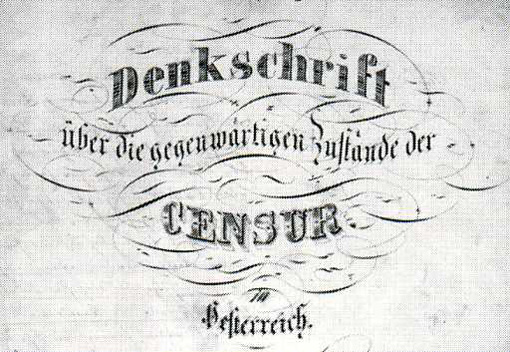 Denkschrift
über die gegenwärtigen Zustände der
CENSUR.
in
Oesterreich.